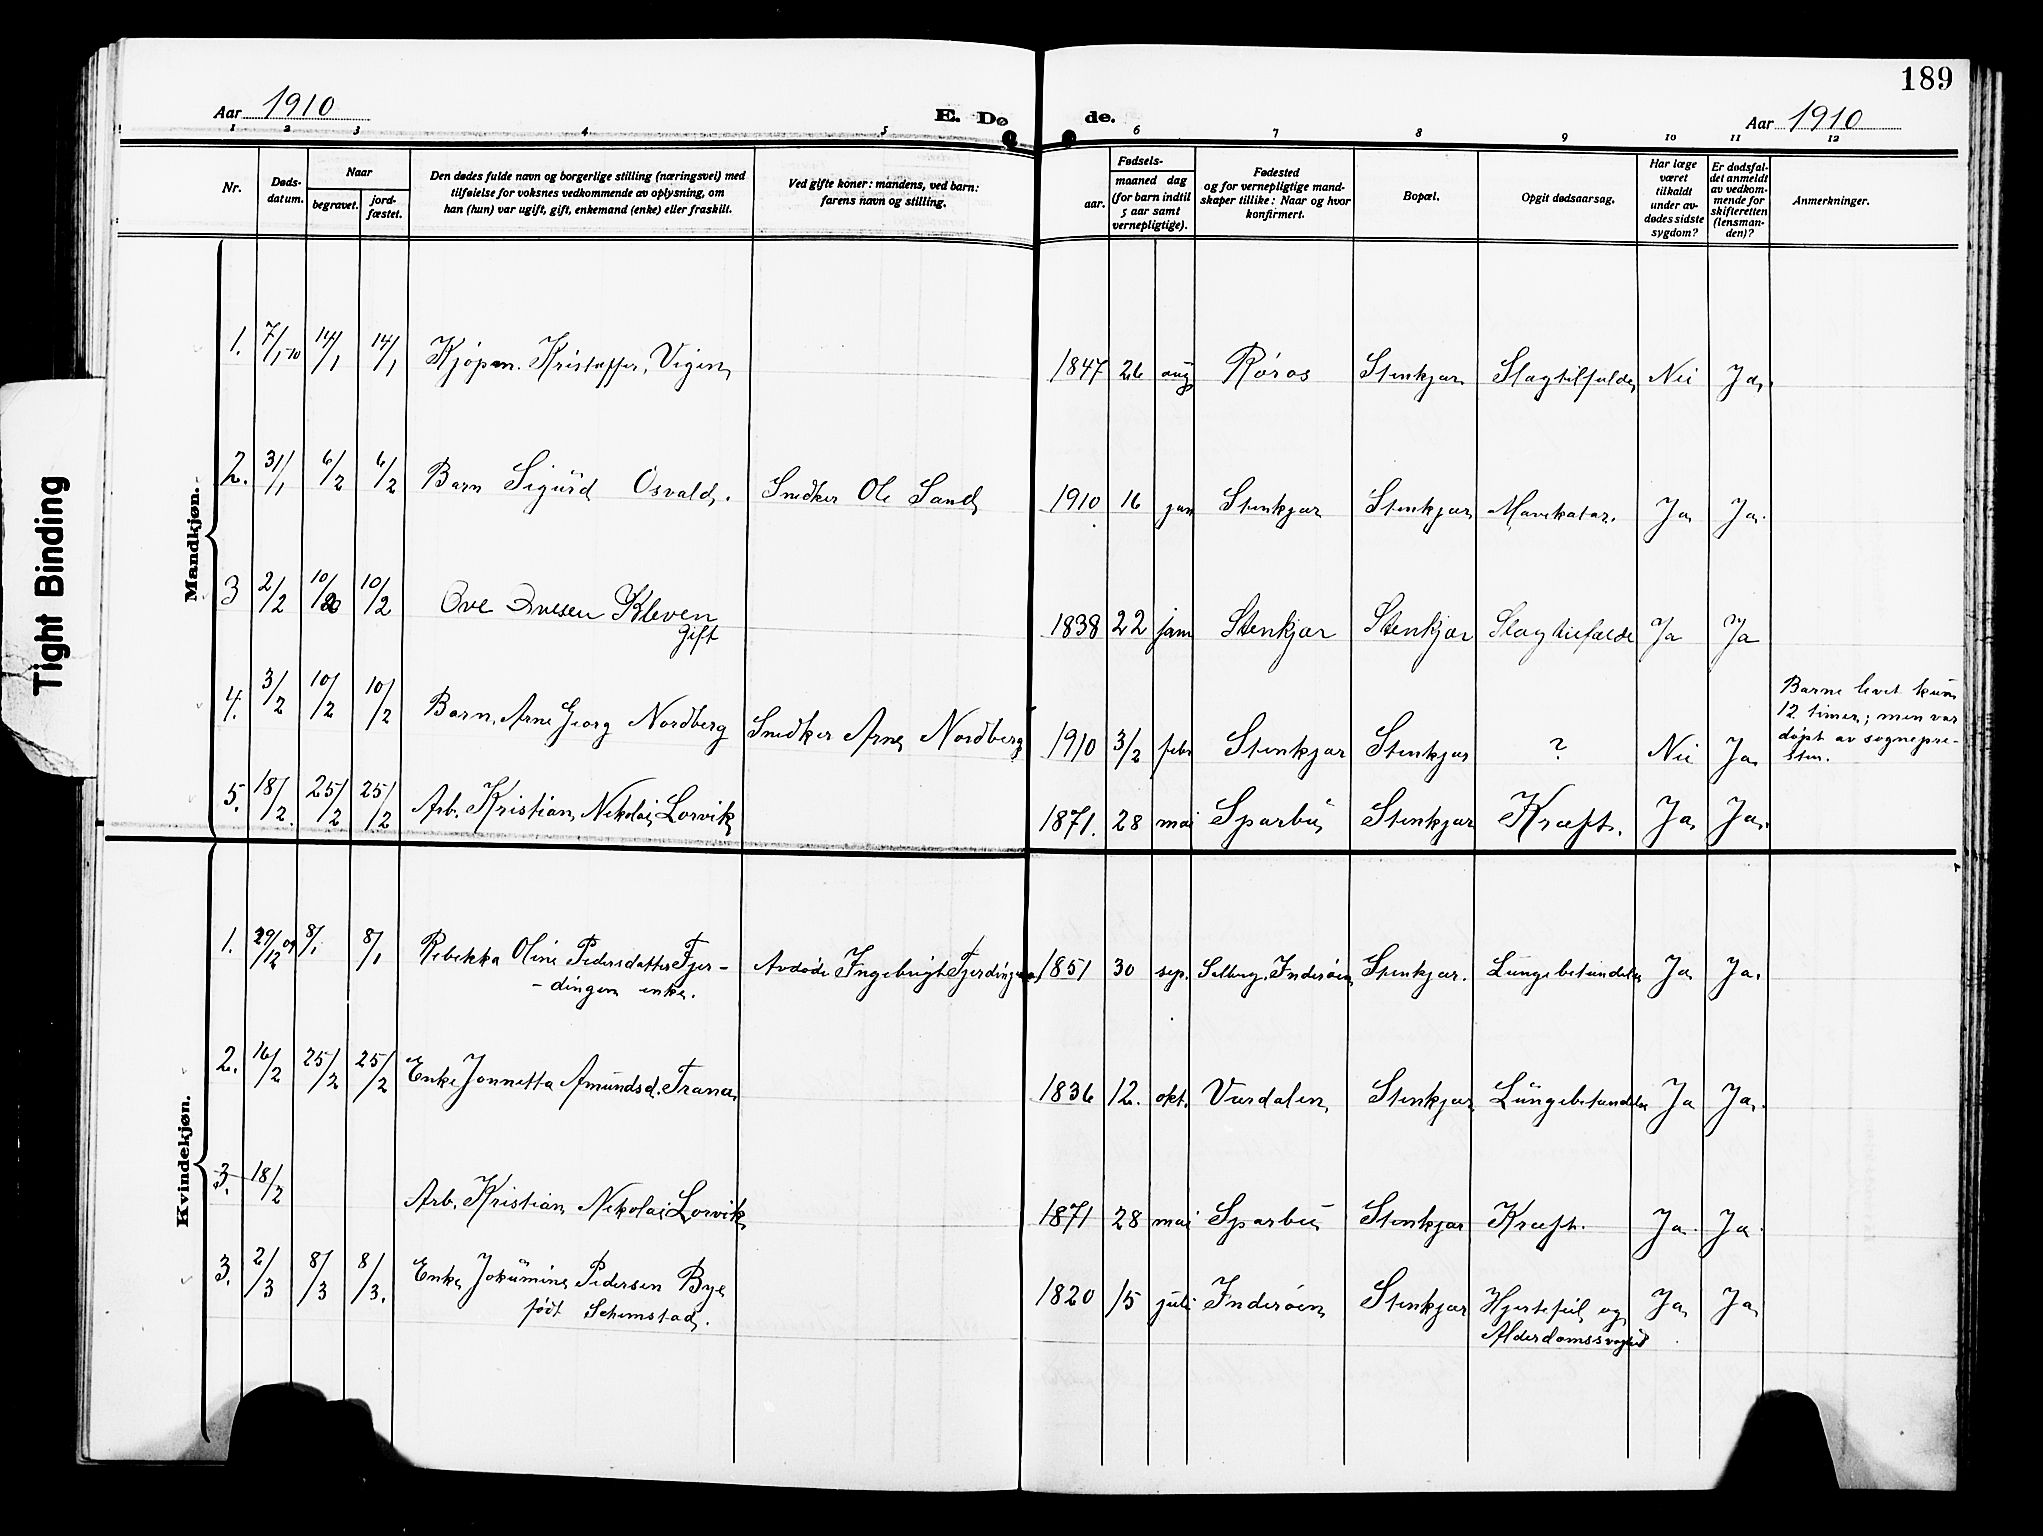 189
Aar 1910
E. Dø
de.
Aar 1910
1 2 3 4 5 6 7 8 9 10 11 12
Nr.
Døds-
datum.
Naar
begravet.
jord-
fæstet.
Den dødes fulde navn og borgerlige stilling (næringsvei) med
tilføielse for voksnes vedkommende av oplysning, om
han (hun) var ugift, gift, enkemand (enke) eller fraskilt.
Ved gifte koner: mandens, ved barn:
farens navn og stilling.
Fødsels-
aar.
maaned dag
(for barn indtil
5 aar samt
vernepligtige).
Fødested
og for vernepligtige mand-
skaper tillike: Naar og hvor
konfirmert.
Bopæl.
Opgit dødsaarsag.
Har læge
været
tilkaldt
under av-
dødes sidste
sygdom?
Er dødsfal-
det anmeldt
av vedkom-
mende for
skifteretten
(lensman-
den)?
Anmerkninger.
Tight Binding
Mandkjøn.
1. 7/1-10 14/1 14/1 Kjøpm. Kristoffer Vigen 1847 26 aug Røros Stenkjær Slagtilfælde Nei Ja
2. 31/1 6/2 6/2 Barn Sigurd Osvald. Snedker Ole Sand 1910 16 jan Stenkjær Stenkjær Mavekatar. Ja Ja.
3 2/2 10/2 10/2 Ove Ovesen Kleven 1838 22 jan Stenkjær Stenkjær Slagtilfælde Ja Ja
gift
4. 3/2 10/2 10/2 Barn, Arne Georg Nordberg Snedker Arne Nordberg 1910 3/2 febr Stenkjær Stenkjær ? Nei Ja
Barnet levet kun
12 timer; men var
døpt av sognepre-
sten.
5. 18/2. 25/2 25/2 Arb. Kristian Nikolai Lorvik 1871. 28 mai Sparbu Stenkjær Kræft. Ja Ja
Kvindekjøn.
1. 29/12 09 8/1 8/1 Rebekka Oline Pedersdatter Fjer- Avdøde Ingebrigt Fjerdingen 1851 30 sep. Inderøen Stenkjær. Lungebetændelse Ja Ja.
-dingen enke.
2. 16/2 25/2 25/2 Enke Jonnetta Amundsd. Trana 1836 12. okt. Værdalen Stenkjær Lungebetændelse Ja Ja.
3. 18/2 Arb. Kristian Nikolai Lorvik 1871 28 mai Sparbu Stenkjær Kræft. Ja Ja
3. 2/3 8/3 8/3. Enke Jokumine Pedersen Bye 1820 15 juli Inderøen Stenkjær Hjertefeil og Ja Ja
født Schemstad. Alderdomssvaghed